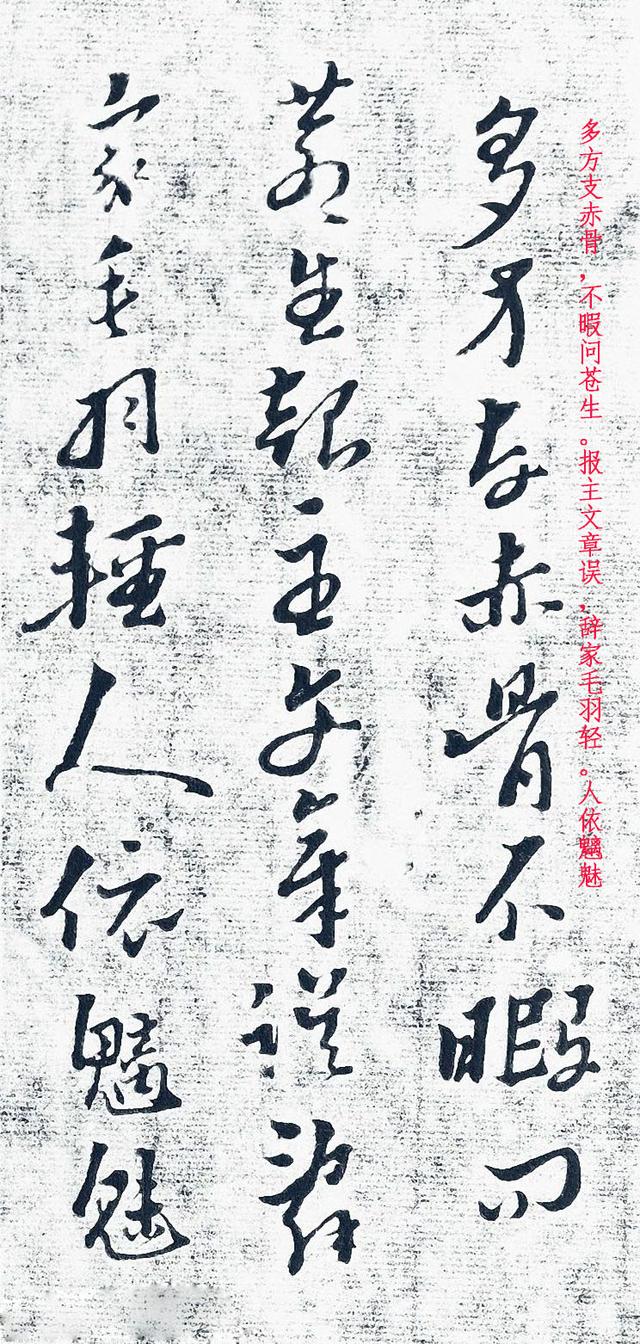 多方支赤骨，不暇问苍生。报主文章误，辞家毛羽轻。人依魑魅
多方支赤骨不暇问
蒼生報主文章誤辭
家毛羽輕人依魑魅